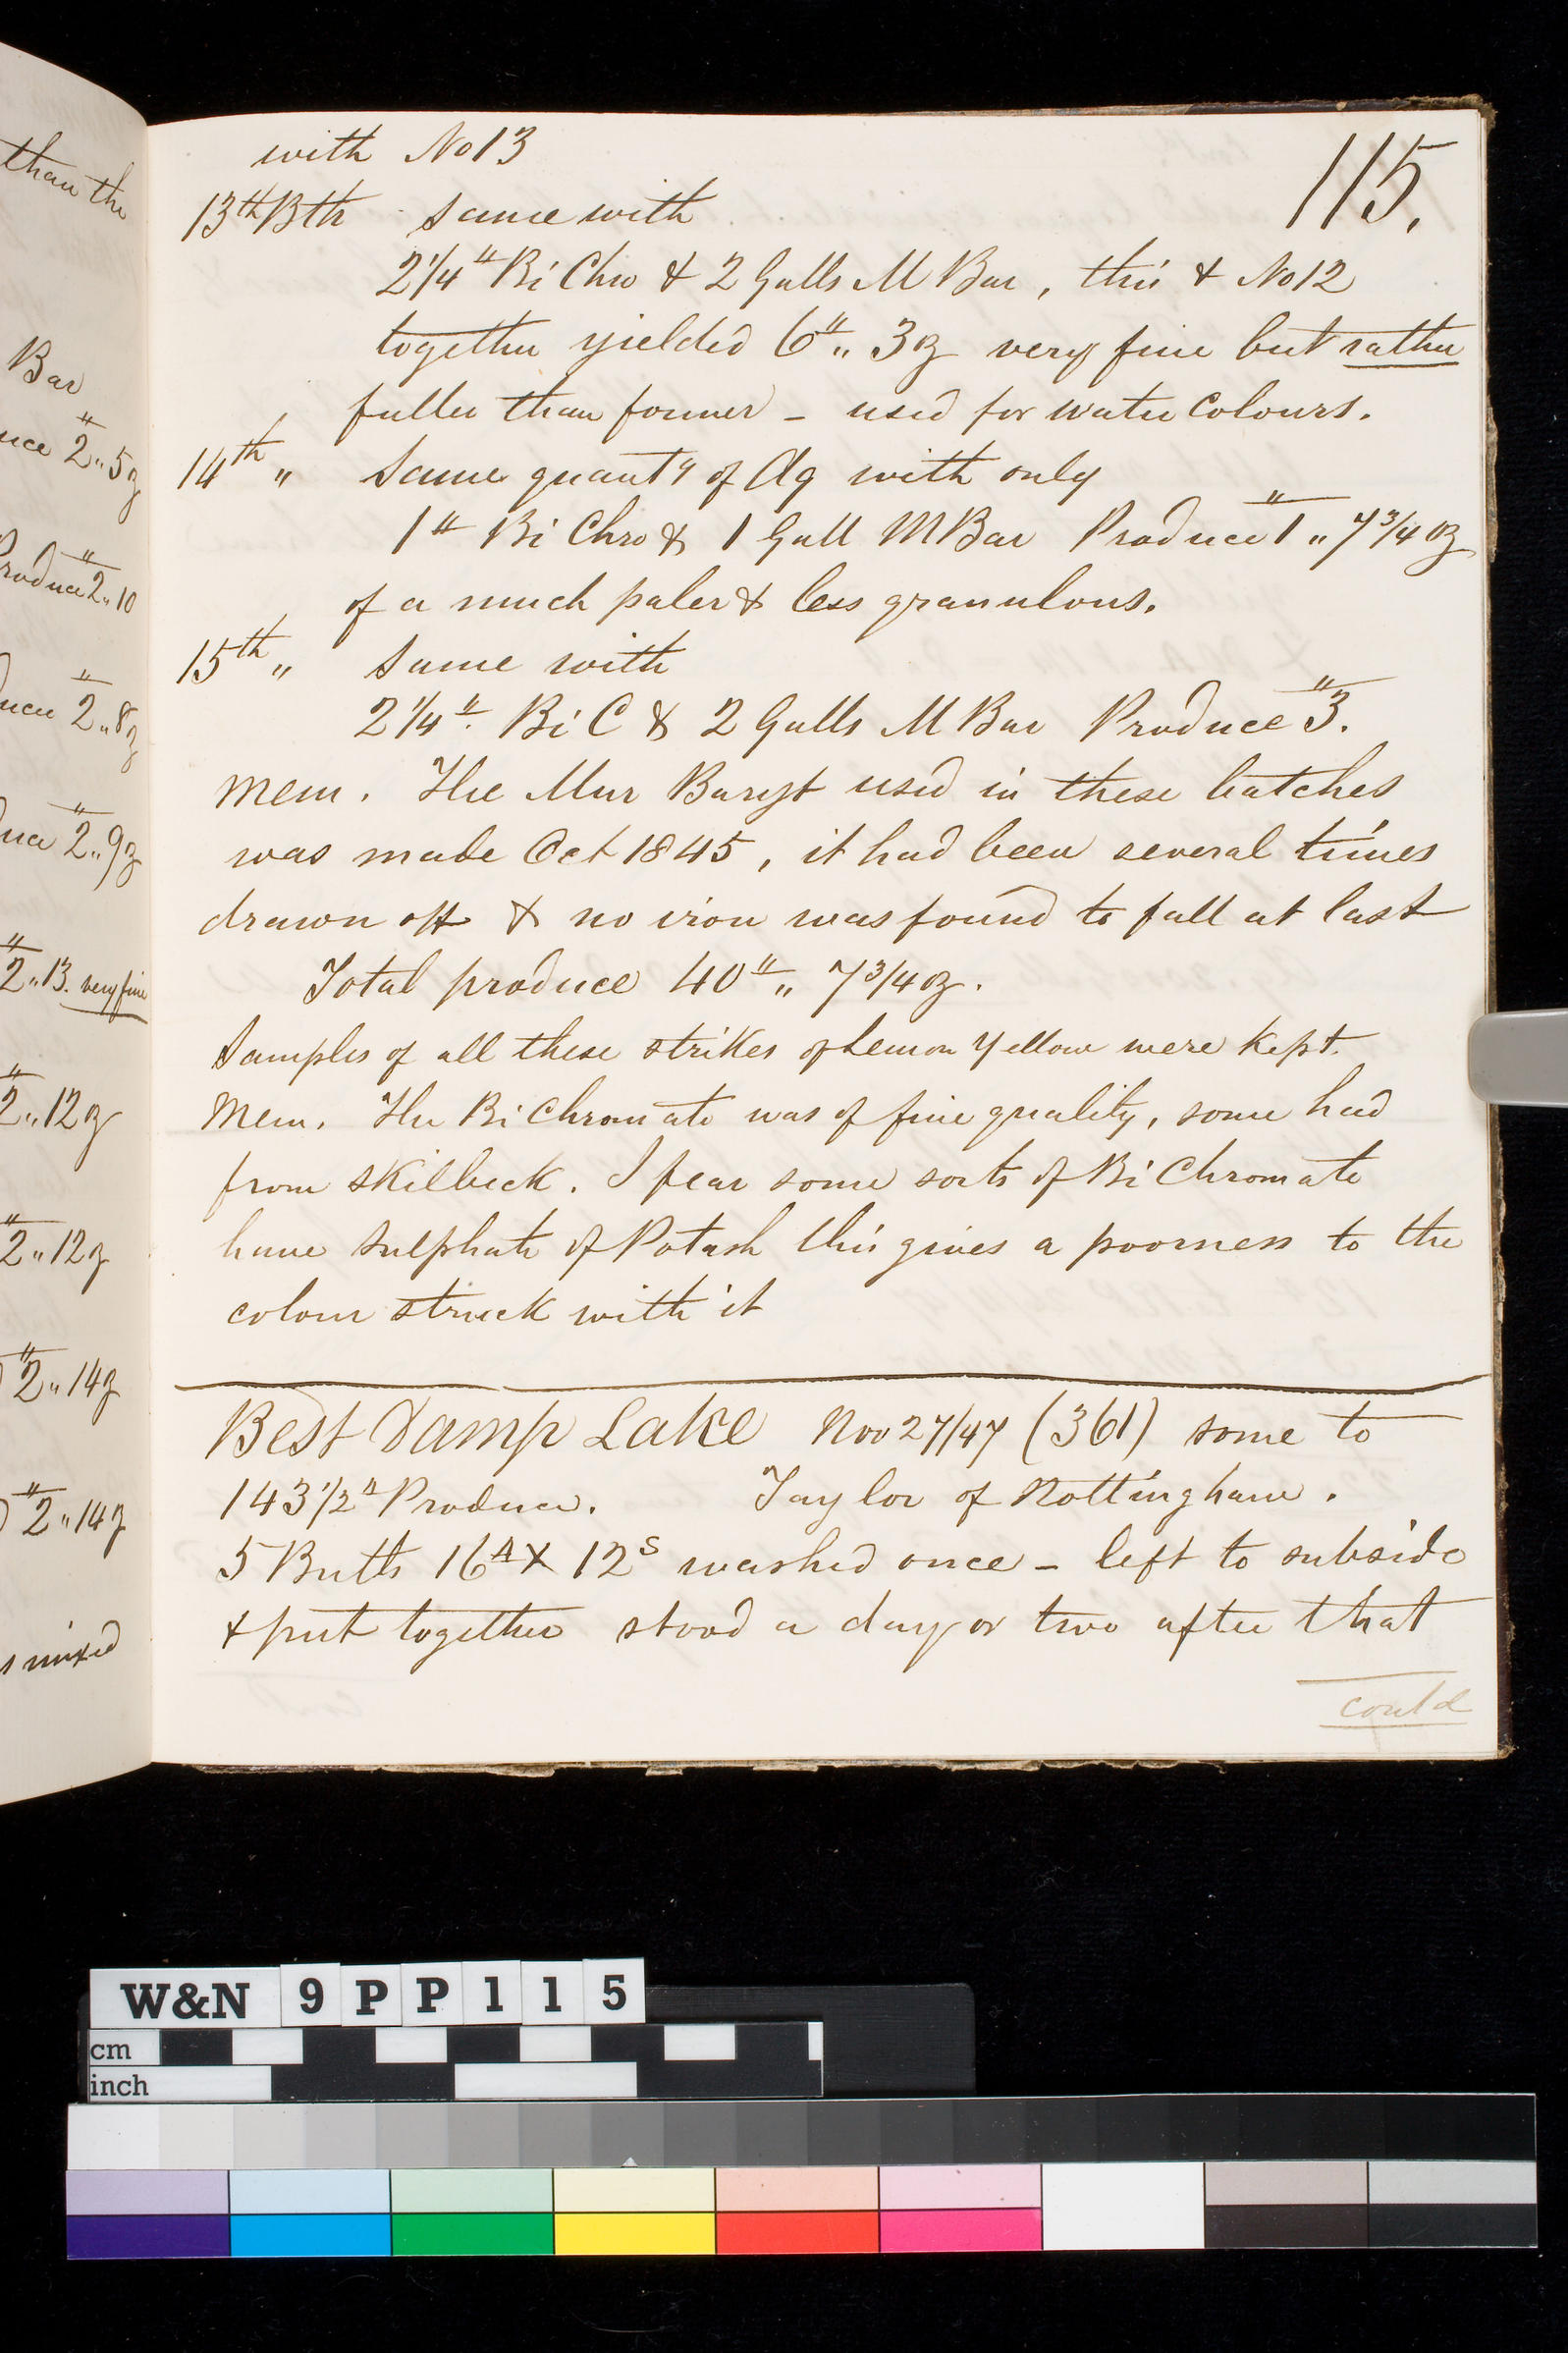 than the
Bar
uce 2".. 5oz
Produce 2".. 10
duce 2".. 8oz
duce 2".. 9oz
2".. 13. very fine
2".. 12oz
2".. 12oz
2".. 14oz
2".. 14oz
mixed
115.
with No 13
13th Bth same with
2 1/4 " Bi Chro & 2 Galls M Bar, this & No 12
together yielded 6 ".. 3oz very fine but rather
fuller than former – used for water Colours.
14th " Same quanty of Aq with only
1 " Bi Chro & 1 Gall M Bar Produce 1".. 7 3/4 oz
of a much paler & less granulous.
15th " Same with
2 1/4 " Bi C & 2 Galls M Bar Produce 3".
Mem. The Mur Baryt used in these batches
was made Oct 1845, it had been several times
drawn off & no iron was found to fall at last
Total produce 40 ".. 7 3/4 oz.
Samples of all these strikes of Lemon Yellow were kept.
Mem. The Bi Chromate was of fine quality, some had
from Skilbeck. I fear some sorts of Bi Chromate
have Sulphate of Potash this gives a poorness to the
colour struck with it
Best Damp Lake Nov 27/47 (361) some to
143 1/2 " Produce. Taylor of Nottingham.
5 Butts 16 " X 12s washed once – left to subside
& put together stood a day or two after that
contd
W&N 9PP115
cm
inch